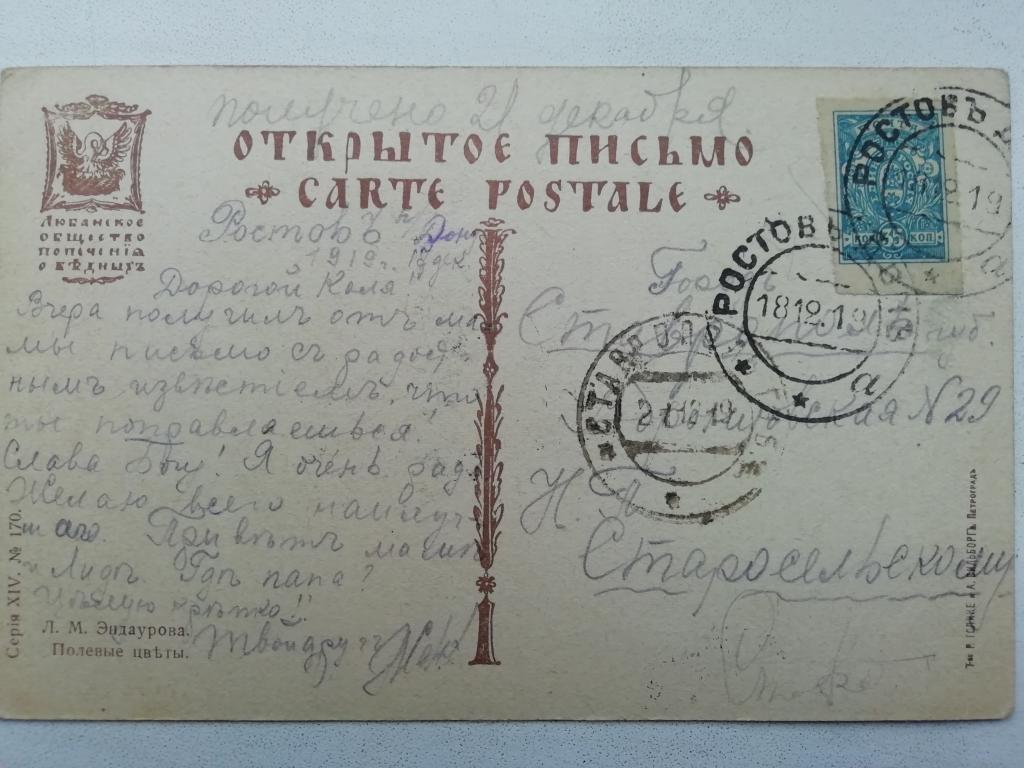 получено 21 декабря.
ОТКРЫТОЕ ПИСЬМО
CARTE POSTALE
ЛЮБАНСКОЕ
ОБЩЕСТВО
ПОПЕЧЕНІЯ
О БѢДНЫХЪ
Ростовъ н/Дону
1919 г. 18 дек.
Дорогой Коля
Вчера получилъ отъ ма-
мы письмо съ радост-
нымъ извѣстіемъ, что
ты поправляешься!
Слава Богу! Я очень радъ
Желаю всего наилуч-
шаго. Привѣтъ мамѣ
и Лидѣ. Гдѣ папа?
Цѣлую крѣпко!!
Твой другъ
Серія XIV. № 170.
Л. М. Эндаурова.
Полевые цвѣты.
РОСТОВЪ
19
а
35 КОП
РОСТОВЪ
18 12 19
а
СТАВРОПОЛЬ
21 12 19
Гор.
Ставрополь губ.
№ 29
Н. П.
Старосельскому
Т-во Р. ГОЛИКЕ и А. ВИЛЬБОРГЪ. Петроградъ